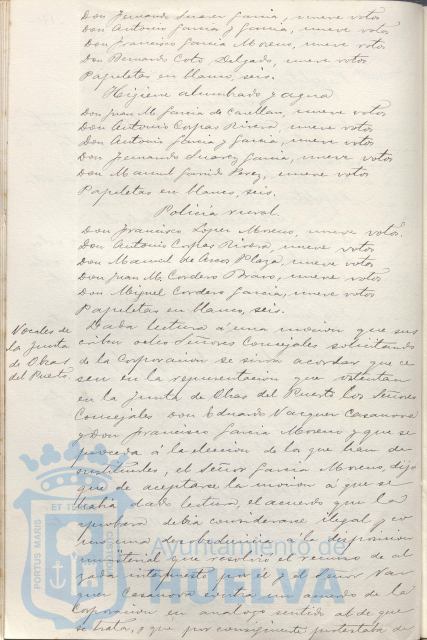 Don Fernando Suarez Garcia, nueve votos
Don Antonio Garcia y Garcia, nueve votos
Don Francisco Garcia Moreno, nueve votos
Don Bernardo Coto Delgado, nueve votos
Papeletas en blanco, seis.
Higiene alumbrado y agua
Don Juan M. Garcia de Casellas, nueve votos
Don Antonio Corpas Rivera, nueve votos
Don Antonio Garcia y Garcia, nueve votos
Don Fernando Suarez Garcia, nueve votos
Don Manuel Garrido Perez, nueve votos
Papeletas en blanco, seis.
Policia rural.
Don Francisco Lopez Moreno, nueve votos.
Don Antonio Corpas Rivera, nueve votos
Don Manuel de Arcos Plaza, nueve votos
Don Juan M. Cordero Bravo, nueve votos
Don Miguel Cordero Garcia, nueve votos
Papeletas en blanco, seis.
Vocales de
la Junta
de Obras
del Puerto
Dada lectura á una mocion que sus
criben ocho Señores Concejales solicitando
de la Corporacion se sirva acordar que ce
sen en la representacion que ostentan
en la Junta de Obras del Puerto los Señores
Concejales Don Eduardo Vazquez Casanova
y Don Francisco Garcia Moreno y que se
proceda á la eleccion de los que han de
sustituirles, el Señor Garcia Moreno, dijo
que de aceptarse la mocion á que se
habia dado lectura, el acuerdo que la
aprobara debia considerarse ilegal y co
mo una desobediencia á la disposicion
ministerial que resolvió el recurso de al
zada interpuesto por el y el Señor Vaz
quez Casanova contra un acuerdo de la
Corporacion en analogo sentido al de que
se trata, y que por consiguiente protestaba de
PORTUS MARIS
ET TERRAE CUSTODIA
Ayuntamiento de
HUELVA